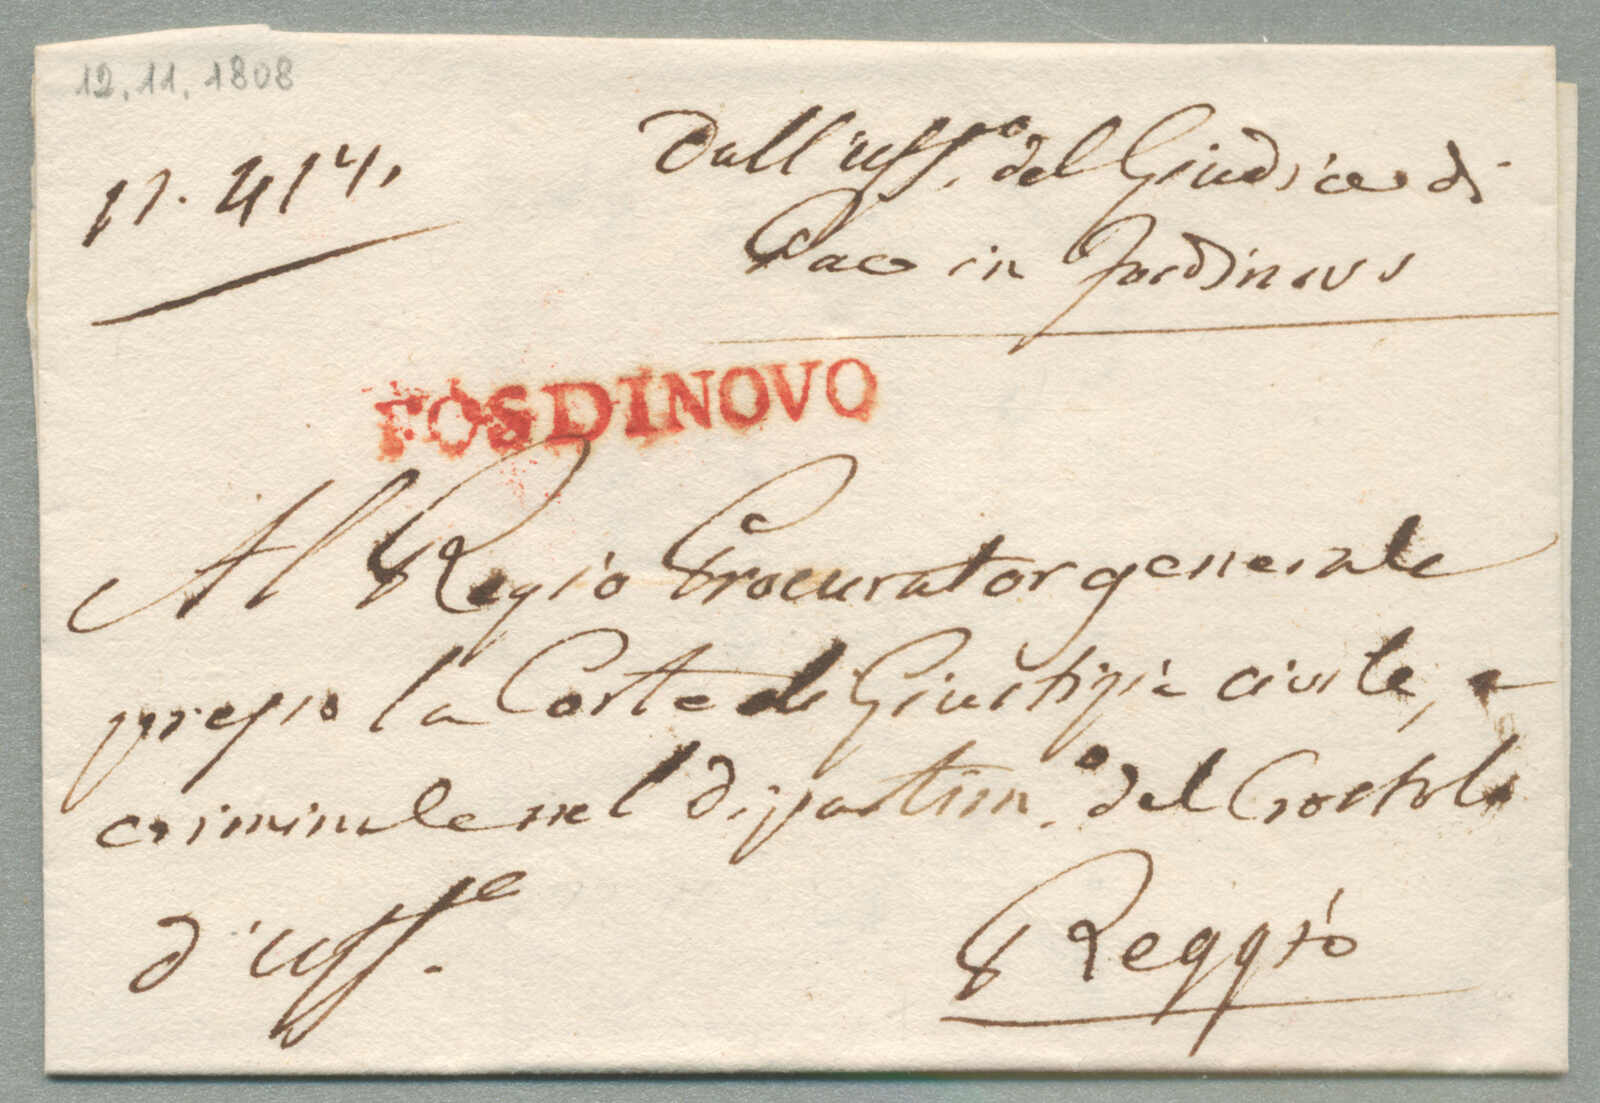 12.11.1808
N. 414.
Dall'uff.o del Giudice di
Pace in Fosdinovo
FOSDINOVO
Al Regio Procurator generale
presso la Corte di Giustizia civile, e
criminale nel dipartim.o del Crostolo
d'uff.e
Reggio